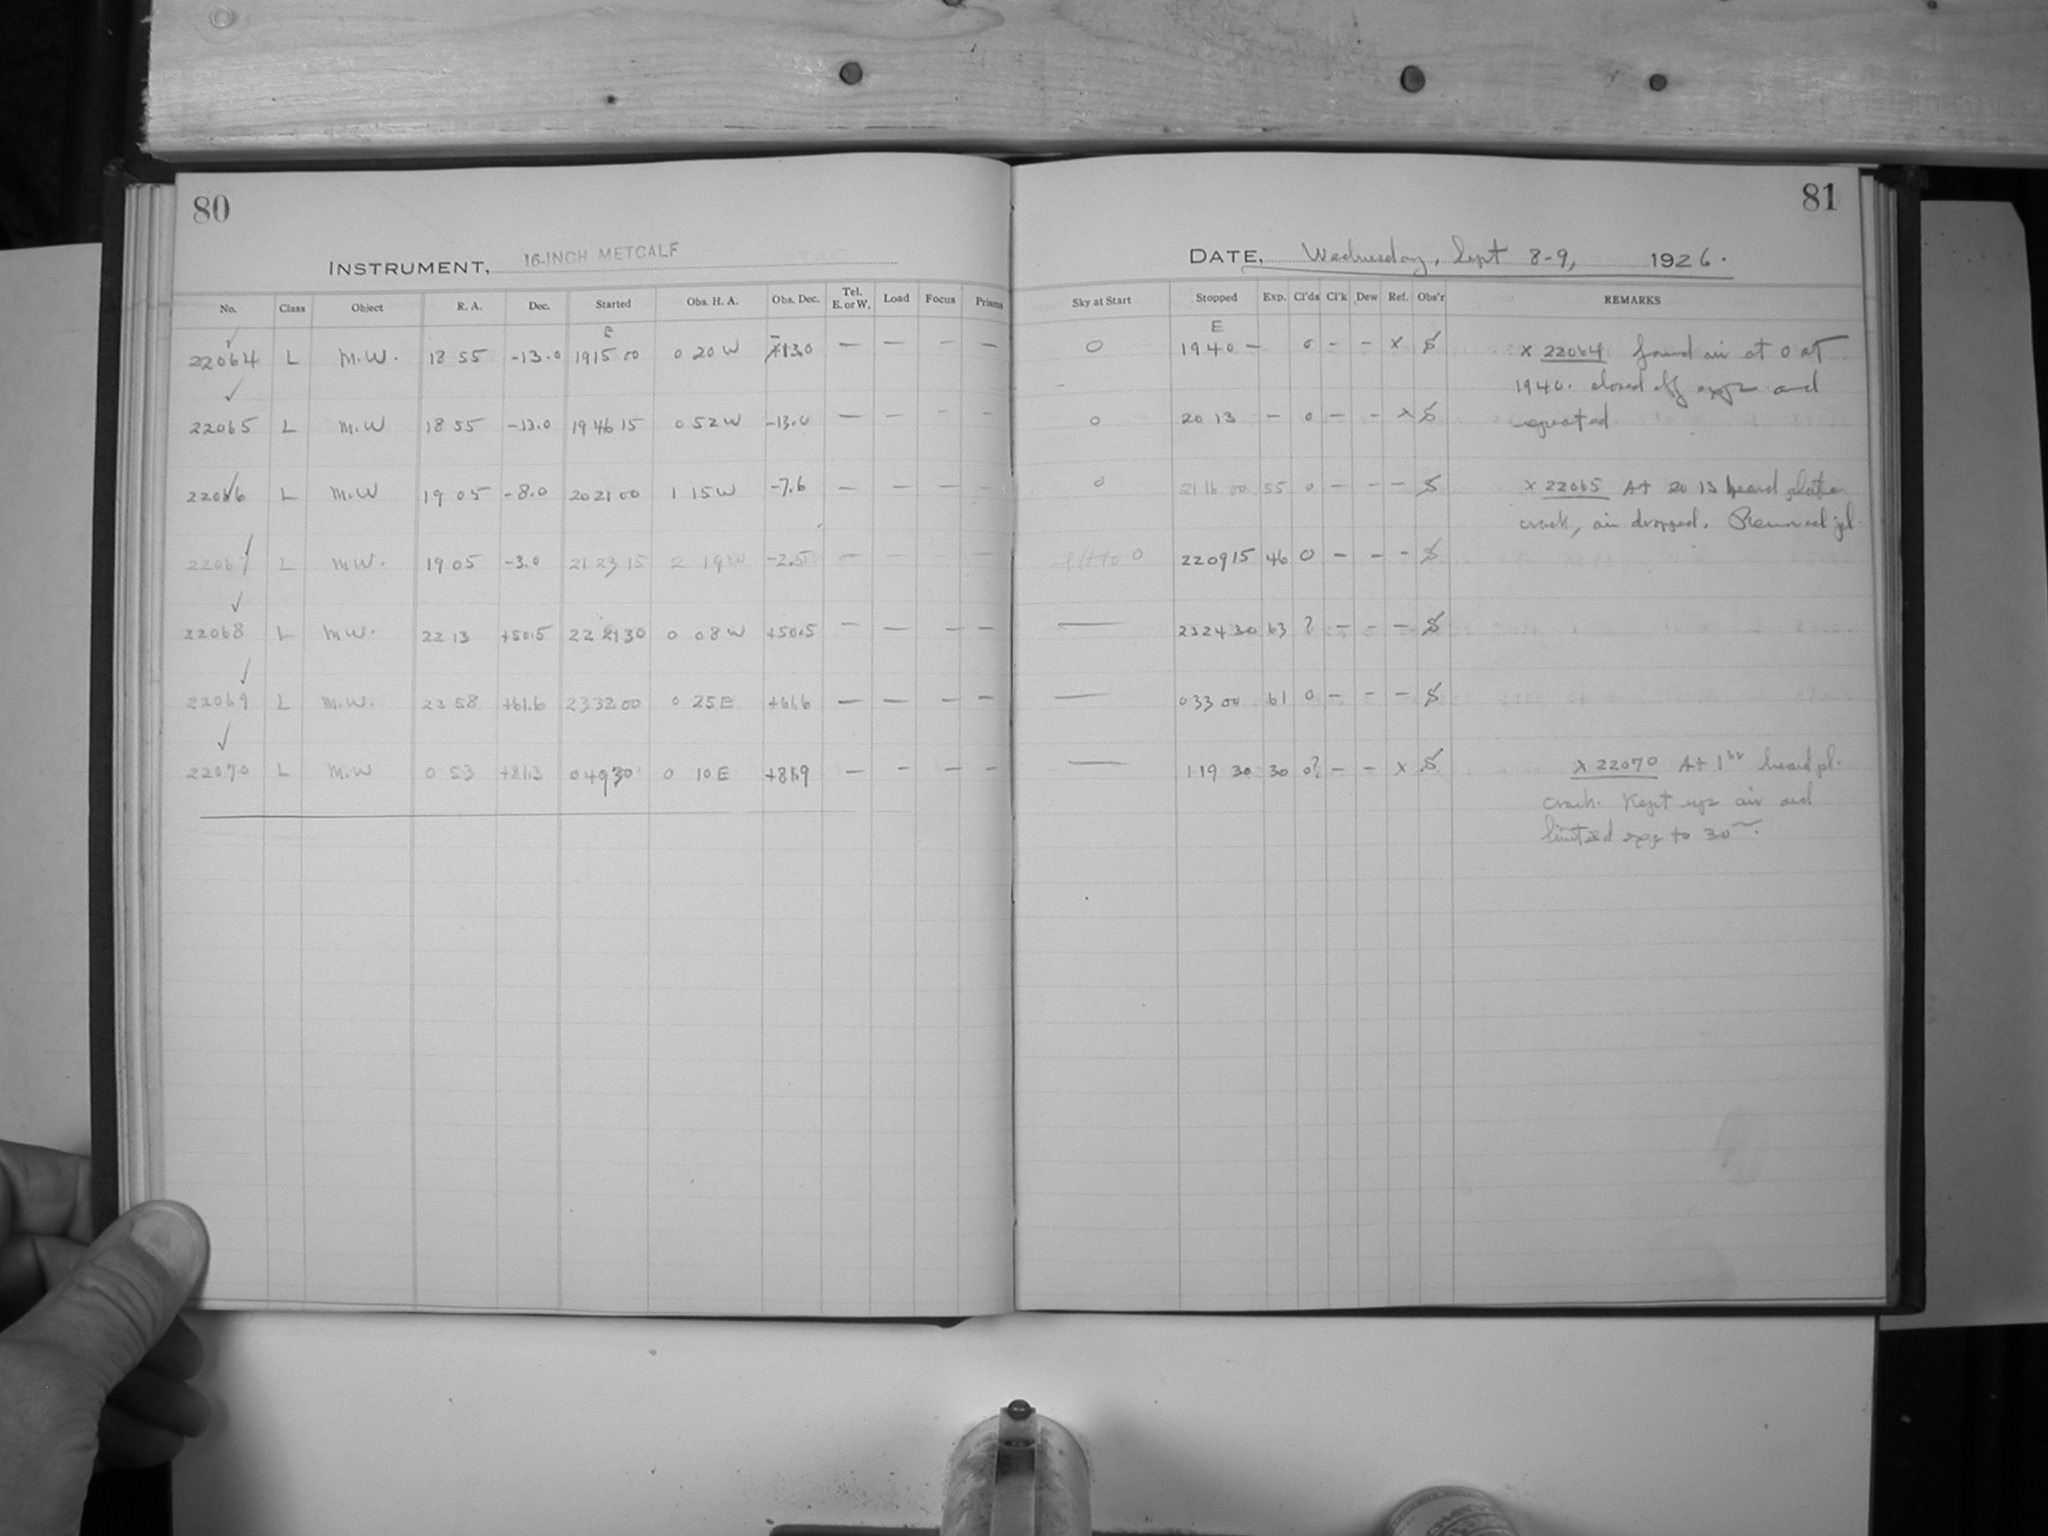 80
INSTRUMENT, 16-INCH METCALF
No. Class Object R. A. Dec. Started Obs. H. A. Obs. Dec. Tel. E. or W. Load Focus Prisms
E
22064 L M.W. 18 55 -13.0 19 15 00 0 20 W -13.0 — — — —
22065 L M.W 18 55 -13.0 19 46 15 0 52 W -13.0 — — — —
22066 L M.W 19 05 -8.0 20 21 00 1 15 W -7.6 — — — —
22067 L M.W. 19 05 -3.0 21 23 15 2 19 W -2.5 — — — —
22068 L M.W. 22 13 +50.5 22 21 30 0 08 W +50.5 — — — —
22069 L M.W. 23 58 +61.6 23 32 00 0 25 E +61.6 — — — —
22070 L M.W 0 53 +81.3 0 49 30 0 10 E +81.9 — — — —
81
DATE, Wednesday, Sept 8-9, 1926.
Sky at Start Stopped Exp. Cl'ds Cl'k Dew Ref. Obs'r REMARKS
E
0 19 40 — 0 — — x S x 22064 found air at 0 at
1940. closed off expr and
0 20 13 — 0 — — x S repeated
0 21 16 00 55 0 — — — S x 22065 At 20 13 heard plate
crack, air dropped. Removed pl.
0 22 09 15 46 0 — — — S
— 23 24 30 63 ? — — — S
— 0 33 00 61 0 — — — S
— 1 19 30 30 0? — — x S x 22070 At 1 heard pl.
crack. Kept up air and
limited exp to 30m.